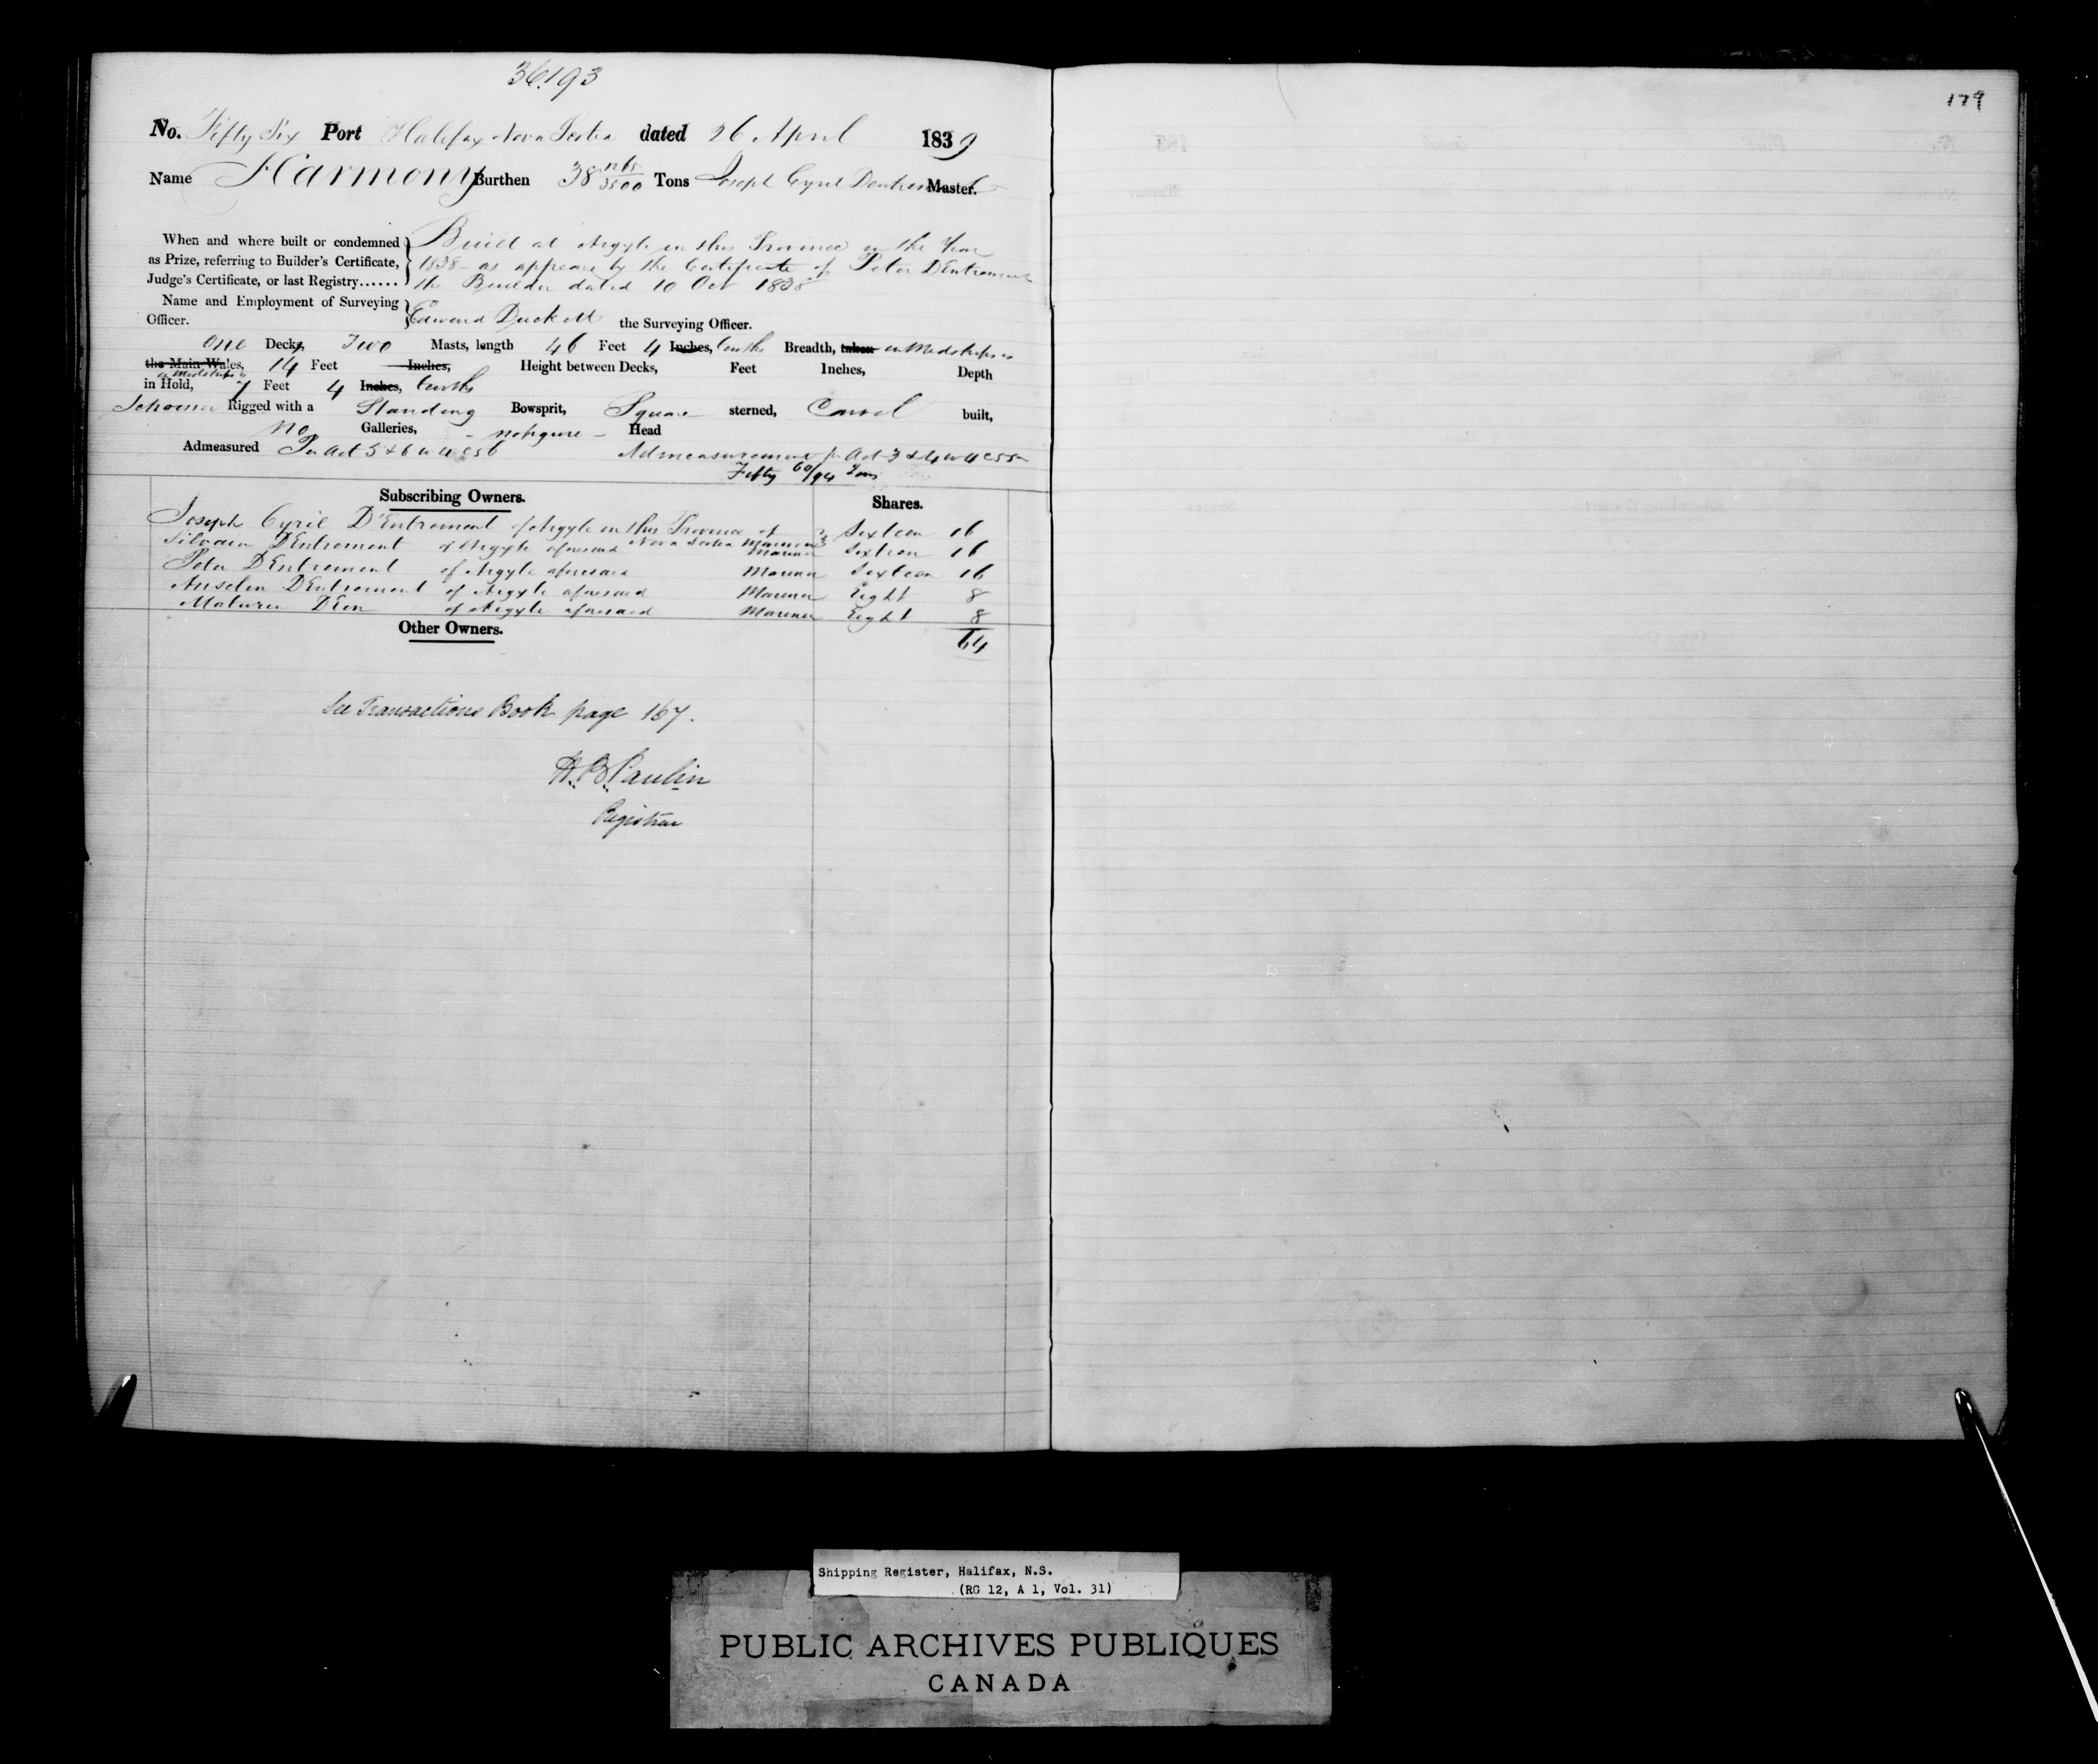 36.193
179
No. Fifty Six Port Halifax Nova Scotia dated 26 April 1839
Name Harmony Burthen 38 /3500 Tons Joseph Cyril Dentremont Master.
When and where built or condemned as Prize, referring to Builder's Certificate, Judge's Certificate, or last Registry......
Built at Argyle in this Province in the Year
1838 as appears by the Certificate of Peter DEntremont
the Builder dated 10 Oct 1838
Name and Employment of Surveying Officer.
Edward Duckett the Surveying Officer.
One Decks, Two Masts, length 46 Feet 4 Inches, tenths Breadth, taken in Midships is
the Main Wales, 14 Feet Inches, Height between Decks, Feet Inches, Depth
in Midships
in Hold, 7 Feet 4 Inches, tenths
Schooner Rigged with a Standing Bowsprit, Square sterned, Carvel built,
no Galleries, - no figure - Head
Admeasured Per Act 5 & 6 W 4 C 56 Admeasurement pr Act 3 & 4 W 4 C 55
Fifty 60/94 Tons
Subscribing Owners. Shares.
Joseph Cyril D'Entremont of Argyle in this Province of Nova Scotia Mariner Sixteen 16
Silvain DEntremont of Argyle aforesaid Mariner Sixteen 16
Peter DEntremont of Argyle aforesaid Mariner Sixteen 16
Anselm DEntremont of Argyle aforesaid Mariner Eight 8
Maturin Deon of Argyle aforesaid Mariner Eight 8
Other Owners.
64
See Transactions Book page 167.
H.B. Paulin
Registrar
Shipping Register, Halifax, N.S.
(RG 12, A 1, Vol. 31)
PUBLIC ARCHIVES PUBLIQUES
CANADA